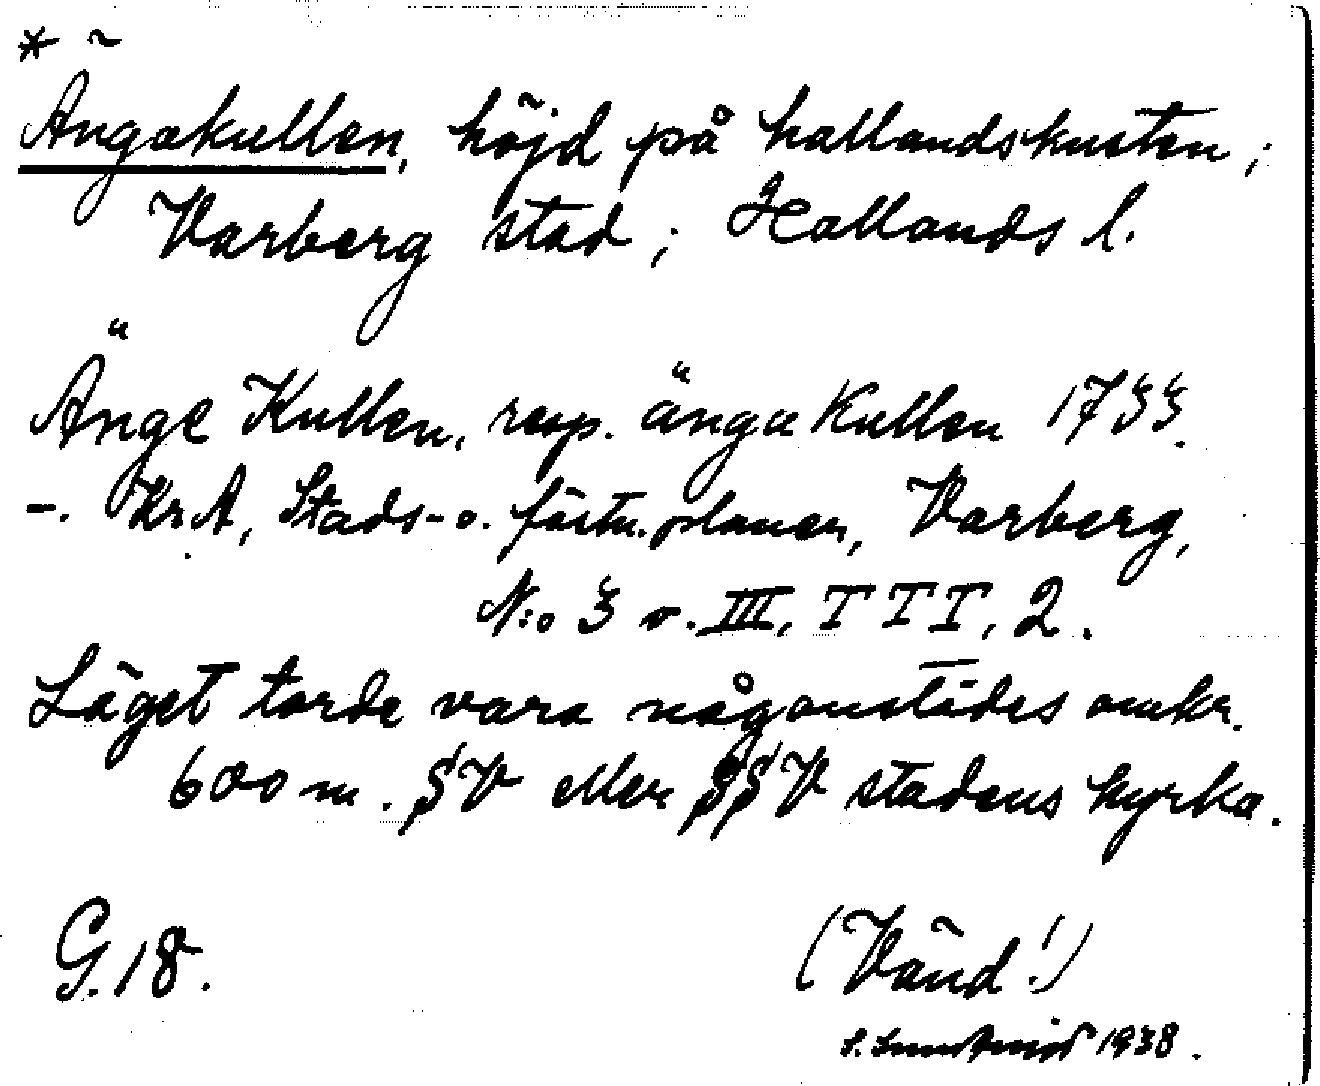 * Ängakullen, höjd på hallandskusten;
Varberg stad; Hallands l.
Änge Kullen, resp. änga Kullen 1733.
–. KrA, Stads- o. förtn. planer, Varberg,
N:o 3 v. III, T T T, 2.
Läget torde vara någonstädes omkr.
600 m. SV eller SSV stadens kyrka.
G. 18. (Vänd!)
1938.